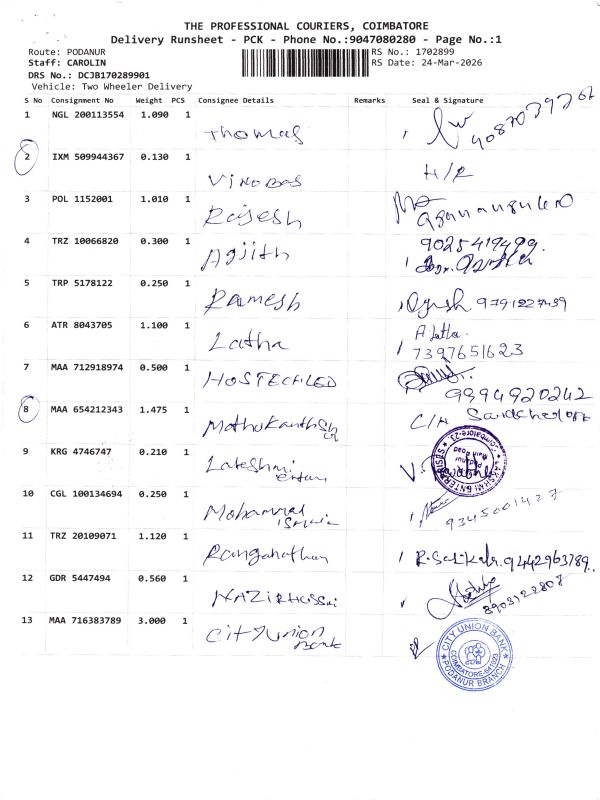 THE PROFESSIONAL COURIERS, COIMBATORE
Delivery Runsheet - PCK - Phone No.:9047080280 - Page No.:1
Route: PODANUR RS No.: 1702899
Staff: CAROLIN RS Date: 24-Mar-2026
DRS No.: DCJB170289901
Vehicle: Two Wheeler Delivery
S No Consignment No Weight PCS Consignee Details Remarks Seal & Signature
1 NGL 200113554 1.090 1
Thomas
2 IXM 509944367 0.130 1
Vinobas H/R
3 POL 1152001 1.010 1
Rajesh
4 TRZ 10066820 0.300 1
Ajjith 9025419499
5 TRP 5178122 0.250 1
Ramesh 9791227439
6 ATR 8043705 1.100 1
Latha 7397651623
7 MAA 712918974 0.500 1
HOSTECHLED 9994920242
8 MAA 654212343 1.475 1
C/H
9 KRG 4746747 0.210 1
Lakshmi
LAKSHMI ENTERPRISES
Podanur
Main Road
Coimbatore-23
10 CGL 100134694 0.250 1
Mohammad 9345001427
11 TRZ 20109071 1.120 1
Ranganathan 9442963789
12 GDR 5447494 0.560 1
NAZIRHUSSAI 8903122807
13 MAA 716383789 3.000 1
City Union
Bank
CITY UNION BANK
COIMBATORE-641023
PODANUR BRANCH